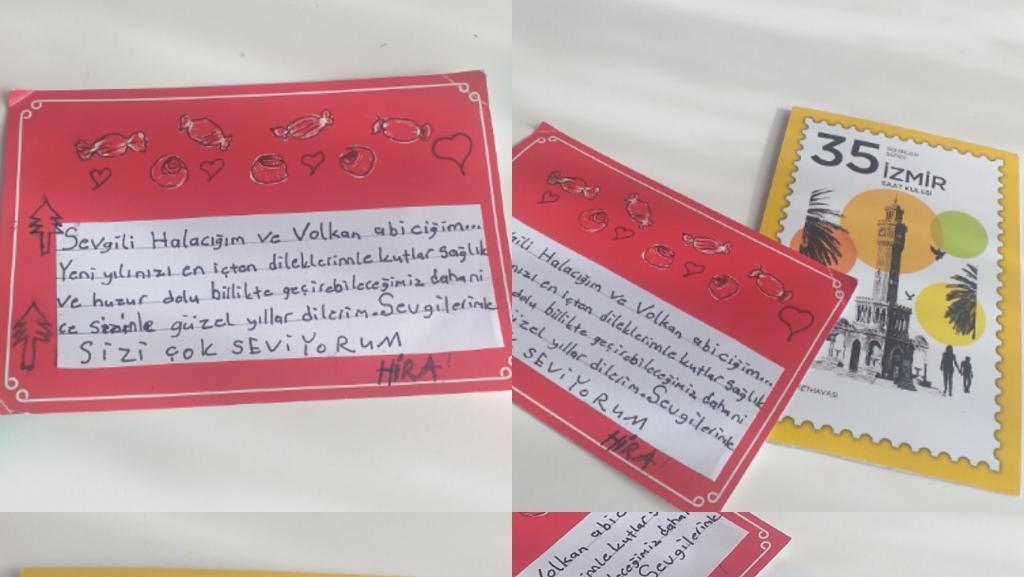 Sevgili Halacığım ve Volkan abiciğim...
Yeni yılınızı en içten dileklerimle kutlar sağlık
ve huzur dolu birlikte geçirebileceğimiz daha ni
ce sizinle güzel yıllar dilerim. Sevgilerimle
SİZİ ÇOK SEVİYORUM
HİRA!
gili Halacığım ve Volkan abiciğim...
nızı en içten dileklerimle kutlar sağlık
dolu birlikte geçirebileceğimiz daha ni
güzel yıllar dilerim. Sevgilerimle
SEVİYORUM
HİRA!
35
İZMİR
SAAT KULESİ
Volkan abic
imle kutlar s
eceğimiz daha
Sevgilerimle